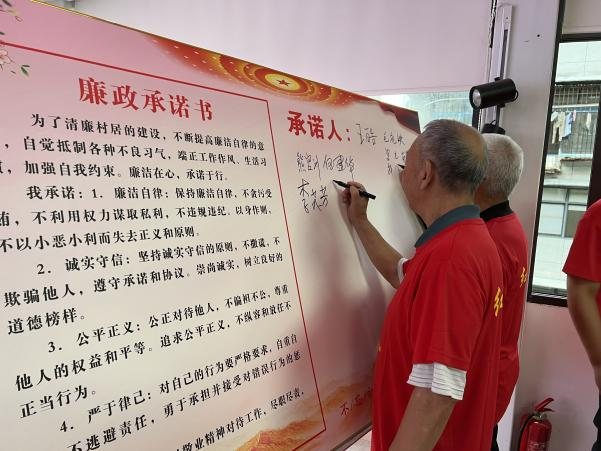 廉政承诺书
为了清廉村居的建设，不断提高廉洁自律的意
，自觉抵制各种不良习气，端正工作作风、生活习
，加强自我约束。廉洁在心，承诺于行。
我承诺：1．廉洁自律：保持廉洁自律，不贪污受
贿，不利用权力谋取私利，不违规违纪、以身作则，
不以小恶小利而失去正义和原则。
2．诚实守信：坚持诚实守信的原则，不撒谎，不
欺骗他人，遵守承诺和协议。崇尚诚实，树立良好的
道德榜样。
3．公平正义：公正对待他人，不偏袒不公，尊重
他人的权益和平等。追求公平正义，不纵容和放任不
正当行为。
4．严于律己：对自己的行为要严格要求，自重自
不逃避责任，勇于承担并接受对错误行为的惩
敬业精神对待工作，尽职尽责，
承诺人：